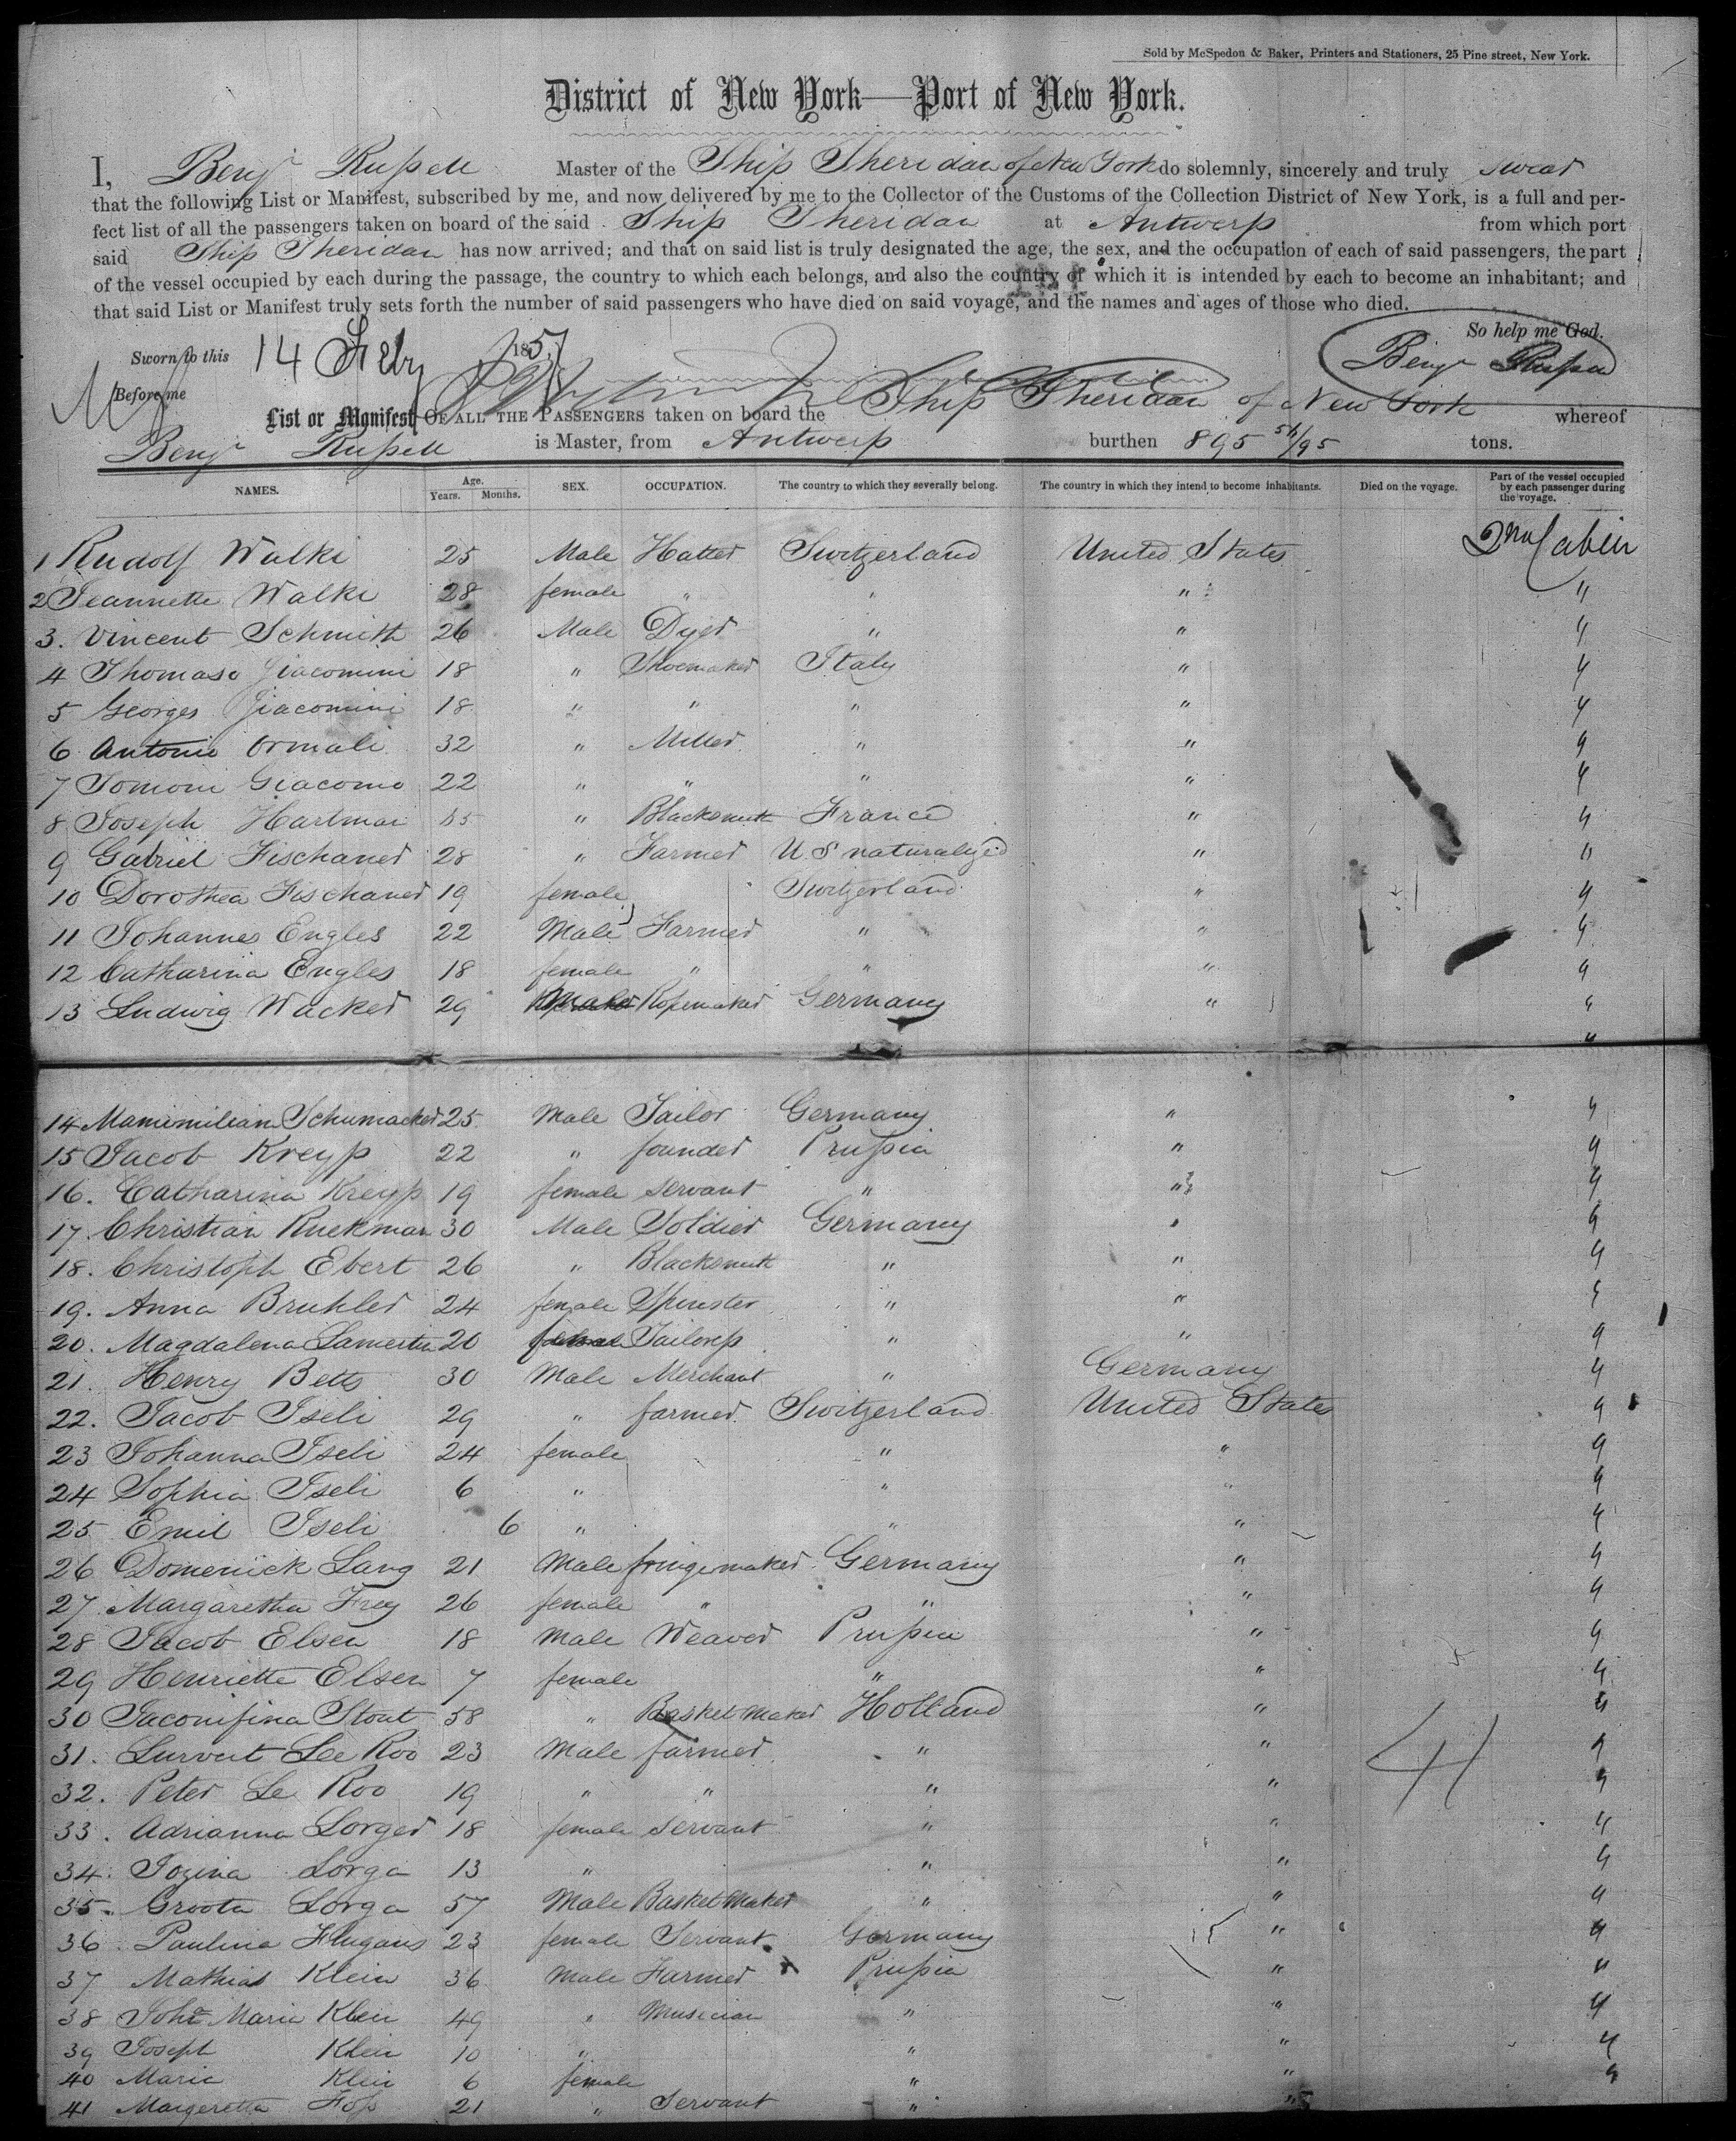 Sold by McSpedon & Baker, Printers and Stationers, 25 Pine street, New York.
District of New York—Port of New York.
I, Benj Russell Master of the Ship Sheridan of New York do solemnly, sincerely and truly swear
that the following List or Manifest, subscribed by me, and now delivered by me to the Collector of the Customs of the Collection District of New York, is a full and per-
fect list of all the passengers taken on board of the said Ship Sheridan at Antwerp from which port
said Ship Sheridan has now arrived; and that on said list is truly designated the age, the sex, and the occupation of each of said passengers, the part
of the vessel occupied by each during the passage, the country to which each belongs, and also the country of which it is intended by each to become an inhabitant; and
that said List or Manifest truly sets forth the number of said passengers who have died on said voyage, and the names and ages of those who died.
So help me God.
Sworn to this 14 Feby 1857 Benj Russell
Before me
List or Manifest OF ALL THE PASSENGERS taken on board the Ship Sheridan of New York whereof
Benj Russell is Master, from Antwerp burthen 895 /95 tons.
NAMES. Age. Years. Months. SEX. OCCUPATION. The country to which they severally belong. The country in which they intend to become inhabitants. Died on the voyage. Part of the vessel occupied by each passenger during the voyage.
1 Rudolf Walki 25 Male Hatter Switzerland United States 2nd Cabin
2 Jeannette Walki 28 female " " " "
3. Vincent Schmith 26 Male Dyer " " "
4 Thomaso Giacomini 18 " Shoemaker Italy " "
5 Georges Giacomini 18 " " " " "
6 Antonio Ormali 32 " Miller " " "
7 Tomoni Giacomo 22 " " " " "
8 Joseph Hartman " Blacksmith France " "
9 Gabriel Fischaner 28 " Farmer U.S naturalized " "
10 Dorothea Fischaner 19 female Switzerland " "
11 Johannes Engles 22 Male Farmer " " "
12 Catharina Engles 18 female " " " "
13 Ludwig Wacker 29 Male Ropemaker Germany " "
"
14 Schumacker 25 Male Tailor Germany " "
15 Jacob Kreyss 22 " founder Prussia " "
16. Catharina Kreyss 19 female servant " " "
17. Christian Ruckman 30 Male Soldier Germany " "
18. Christoph Ebert 26 " Blacksmith " " "
19. Anna Bruhler 24 female Spinster " " "
20. Magdalena 20 female Tailoress " " "
21. Henry Betts 30 Male Merchant " Germany "
22. Jacob Iseli 29 " farmer Switzerland United States "
23 Johanna Iseli 24 female " " "
24 Sophia Iseli 6 " " " "
25 Emil Iseli 6 " " " "
26 Domenick Lang 21 Male fringemaker Germany " "
27. Margaretha Frey 26 female " " " "
28 Jacob Elsen 18 Male Weaver Prussia " "
29 Henriette Elsen 7 female " " "
30 Stout 58 " Basket Maker Holland " "
31. Le Roo 23 Male farmer " " "
32. Peter Le Roo 19 " " " " "
33. Adrianna Lorger 18 female servant " " "
34. Jozina Lorga 13 " " " "
35. Groota Lorga 57 Male Basket Maker " " "
36. Paulina 23 female Servant Germany " "
37 Mathias Klein 36 Male Farmer Prussia " "
38 Maria Klein 49 " Musician " " "
39 Joseph Klein 10 " " " "
40 Maria Klein 6 female " " "
41 Margeretta Foss 21 " Servant " "